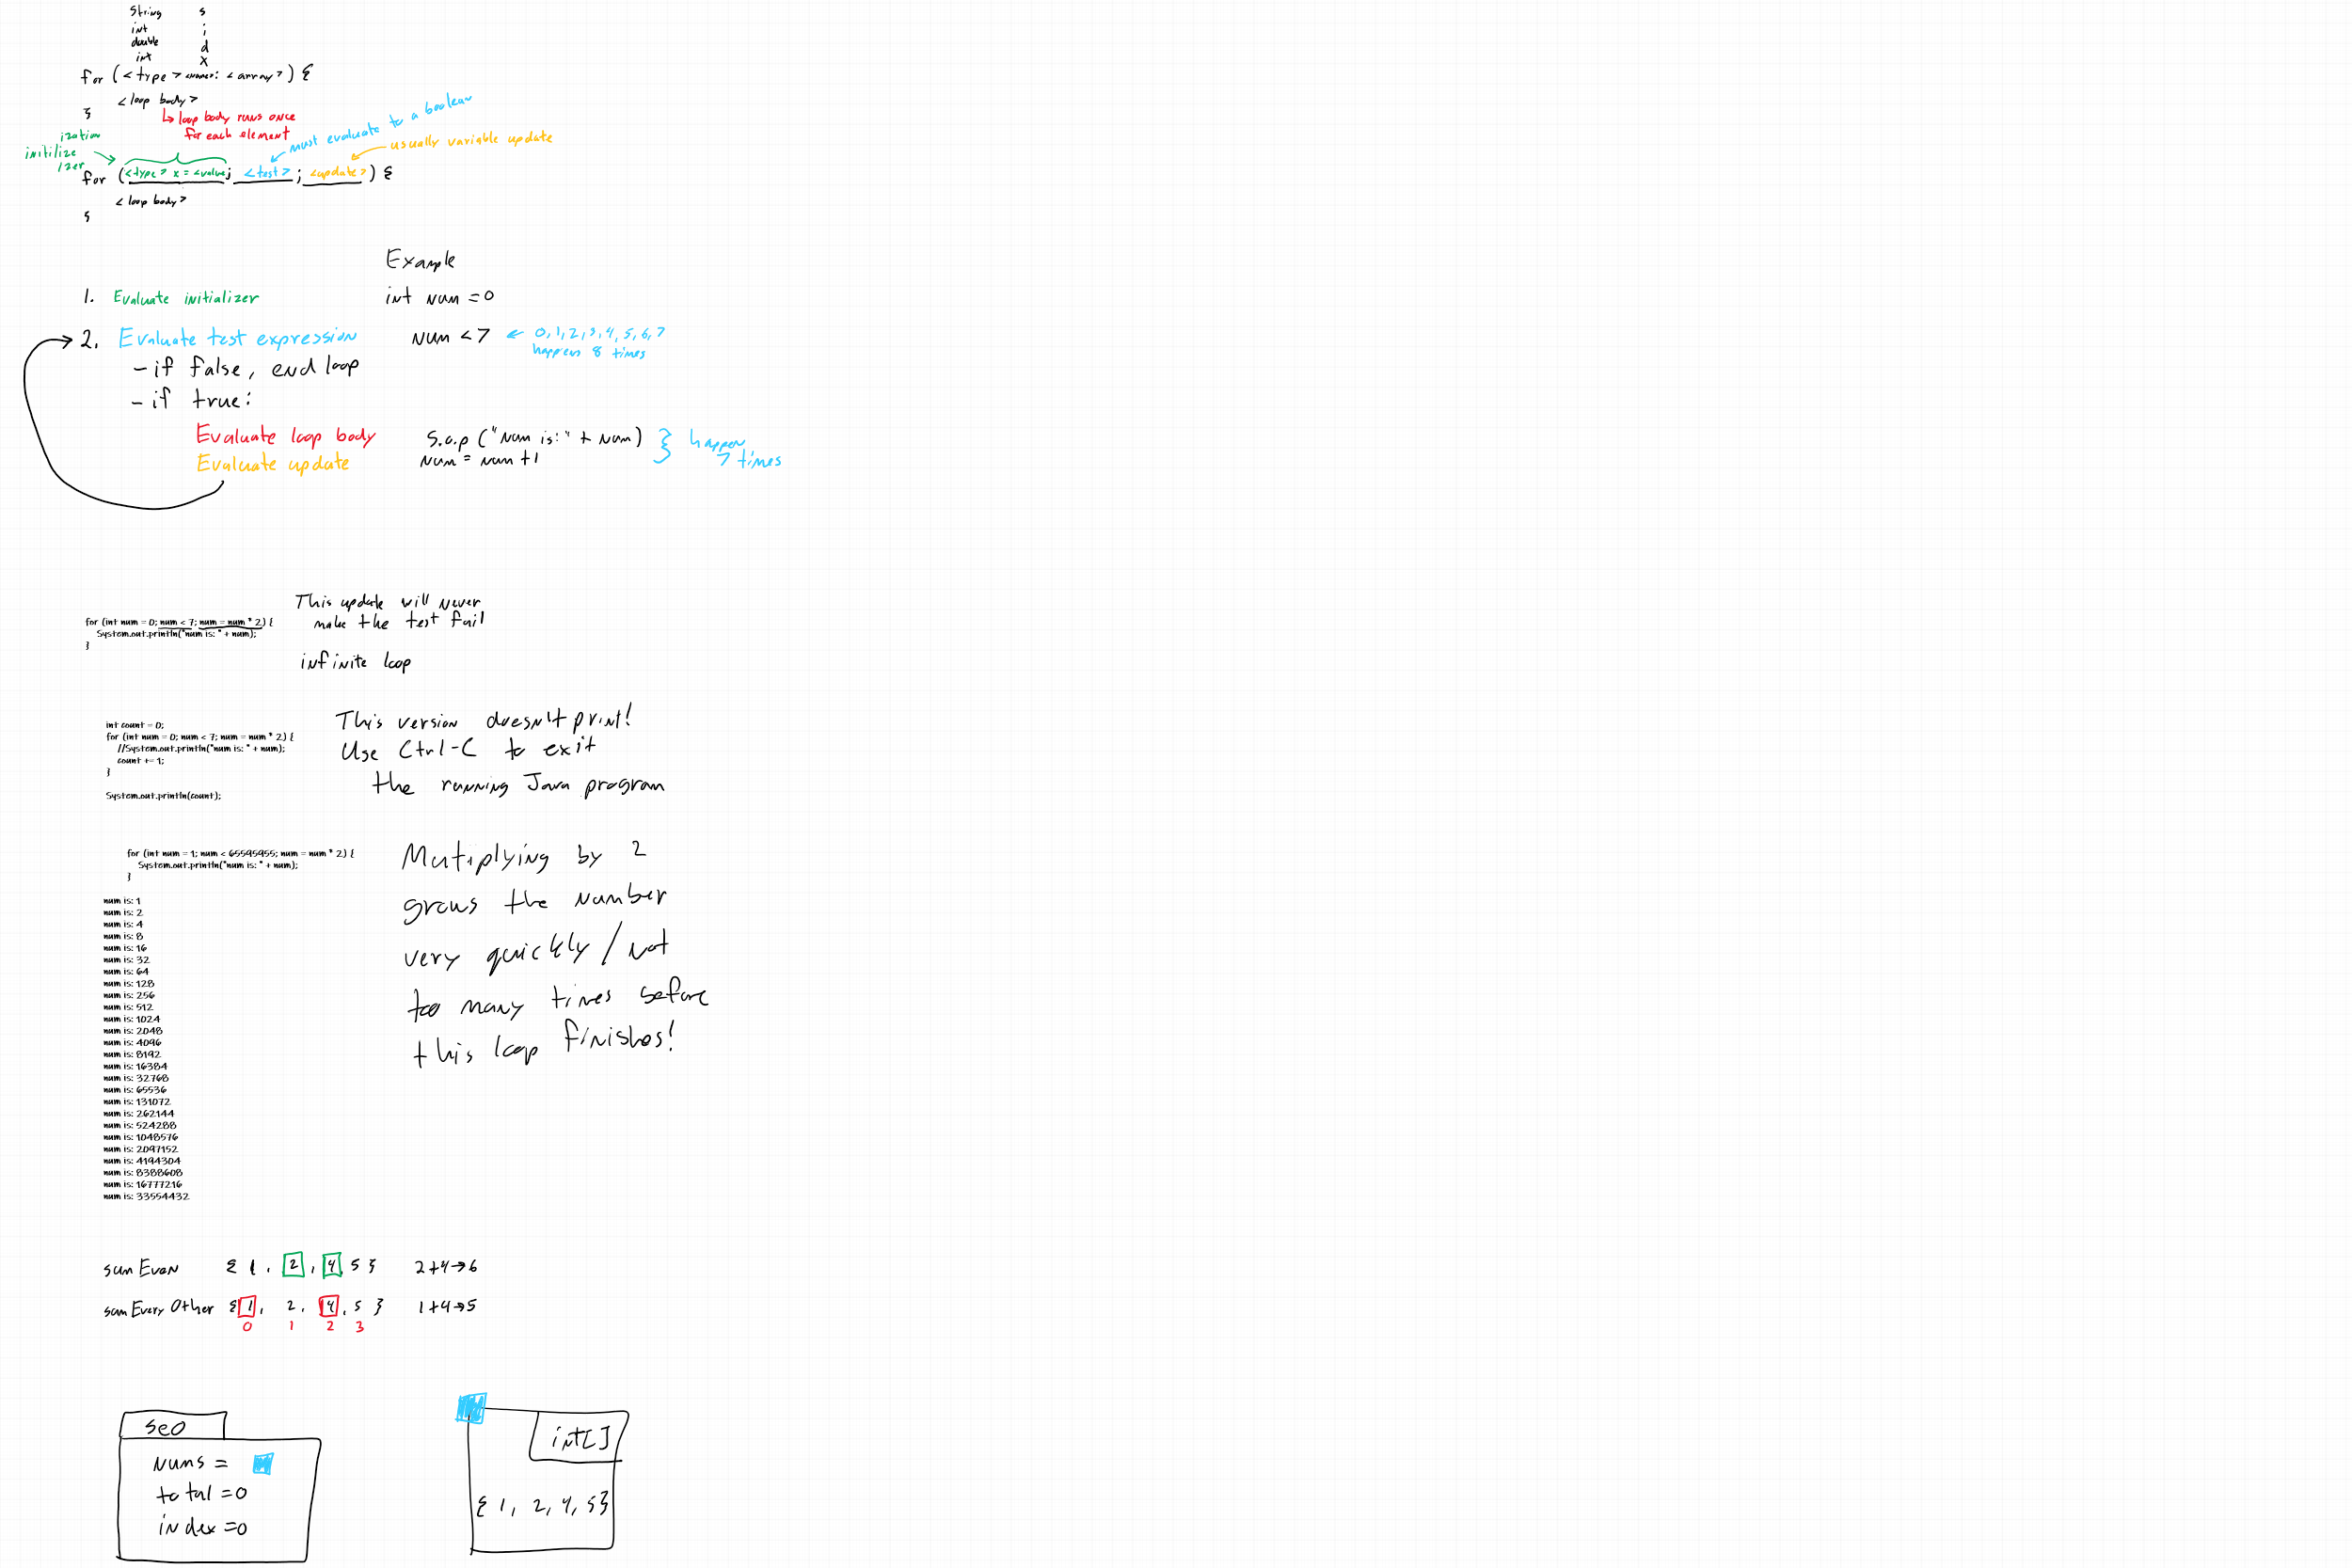 String s
int i
double d
int x
for (<type> <name>: <array>) {
<loop body>
}
↳ loop body runs once
for each element
must evaluate to a boolean
usually variable update
ization
initilize
izer
for (<type> x = <value>; <test>; <update>) {
<loop body>
}
Example
1. Evaluate initializer int num = 0
2. Evaluate test expression num < 7 ← 0, 1, 2, 3, 4, 5, 6, 7
happens 8 times
- if false, end loop
- if true:
Evaluate loop body S.o.p ("Num is:" + num) } happen
Evaluate update num = num +1 7 times
for (int num = 0; num < 7; num = num * 2) {
System.out.println("num is: " + num);
}
This update will never
make the test fail
infinite loop
int count = 0;
for (int num = 0; num < 7; num = num * 2) {
//System.out.println("num is: " + num);
count += 1;
}
System.out.println(count);
This version doesn't print!
Use Ctrl-C to exit
the running Java program
for (int num = 1; num < 65595955; num = num * 2) {
System.out.println("num is: " + num);
}
num is: 1
num is: 2
num is: 4
num is: 8
num is: 16
num is: 32
num is: 64
num is: 128
num is: 256
num is: 512
num is: 1024
num is: 2048
num is: 4096
num is: 8192
num is: 16384
num is: 32768
num is: 65536
num is: 131072
num is: 262144
num is: 524288
num is: 1048576
num is: 2097152
num is: 4194304
num is: 8388608
num is: 16777216
num is: 33554432
Multiplying by 2
grows the number
very quickly / not
too many times before
this loop finishes!
sum Even { 1, 2, 4 5 } 2+4→6
sum Every Other { 1, 2, 4, 5 } 1+4→5
0 1 2 3
seo
nums =
total =0
index =0
int[]
{ 1, 2, 4, 5}